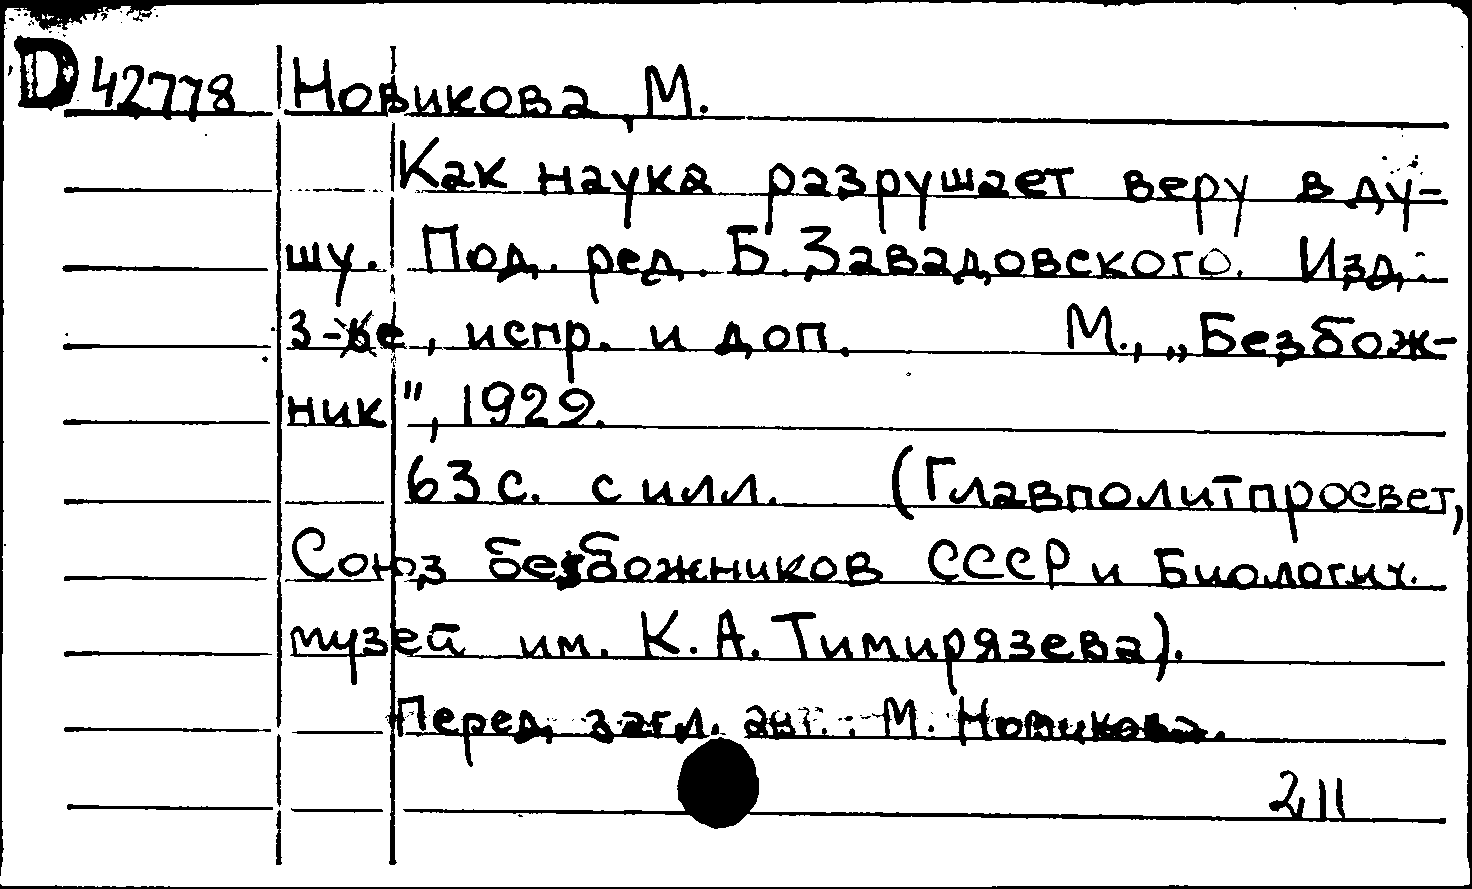 D 42778 Новикова, М.
Как наука разрушает веру в ду-
шу. Под. ред. Б. Завадовского. Изд.
3-е, испр. и доп. М., „Безбож-
ник", 1929.
63 с. с илл. (Главполитпросвет,
Союз безбожников СССР и Биологич.
музей им. К. А. Тимирязева).
Перед загл. авт.: М. Новикова.
211